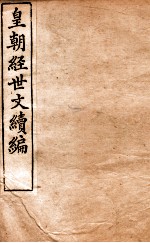 皇朝經世文續編